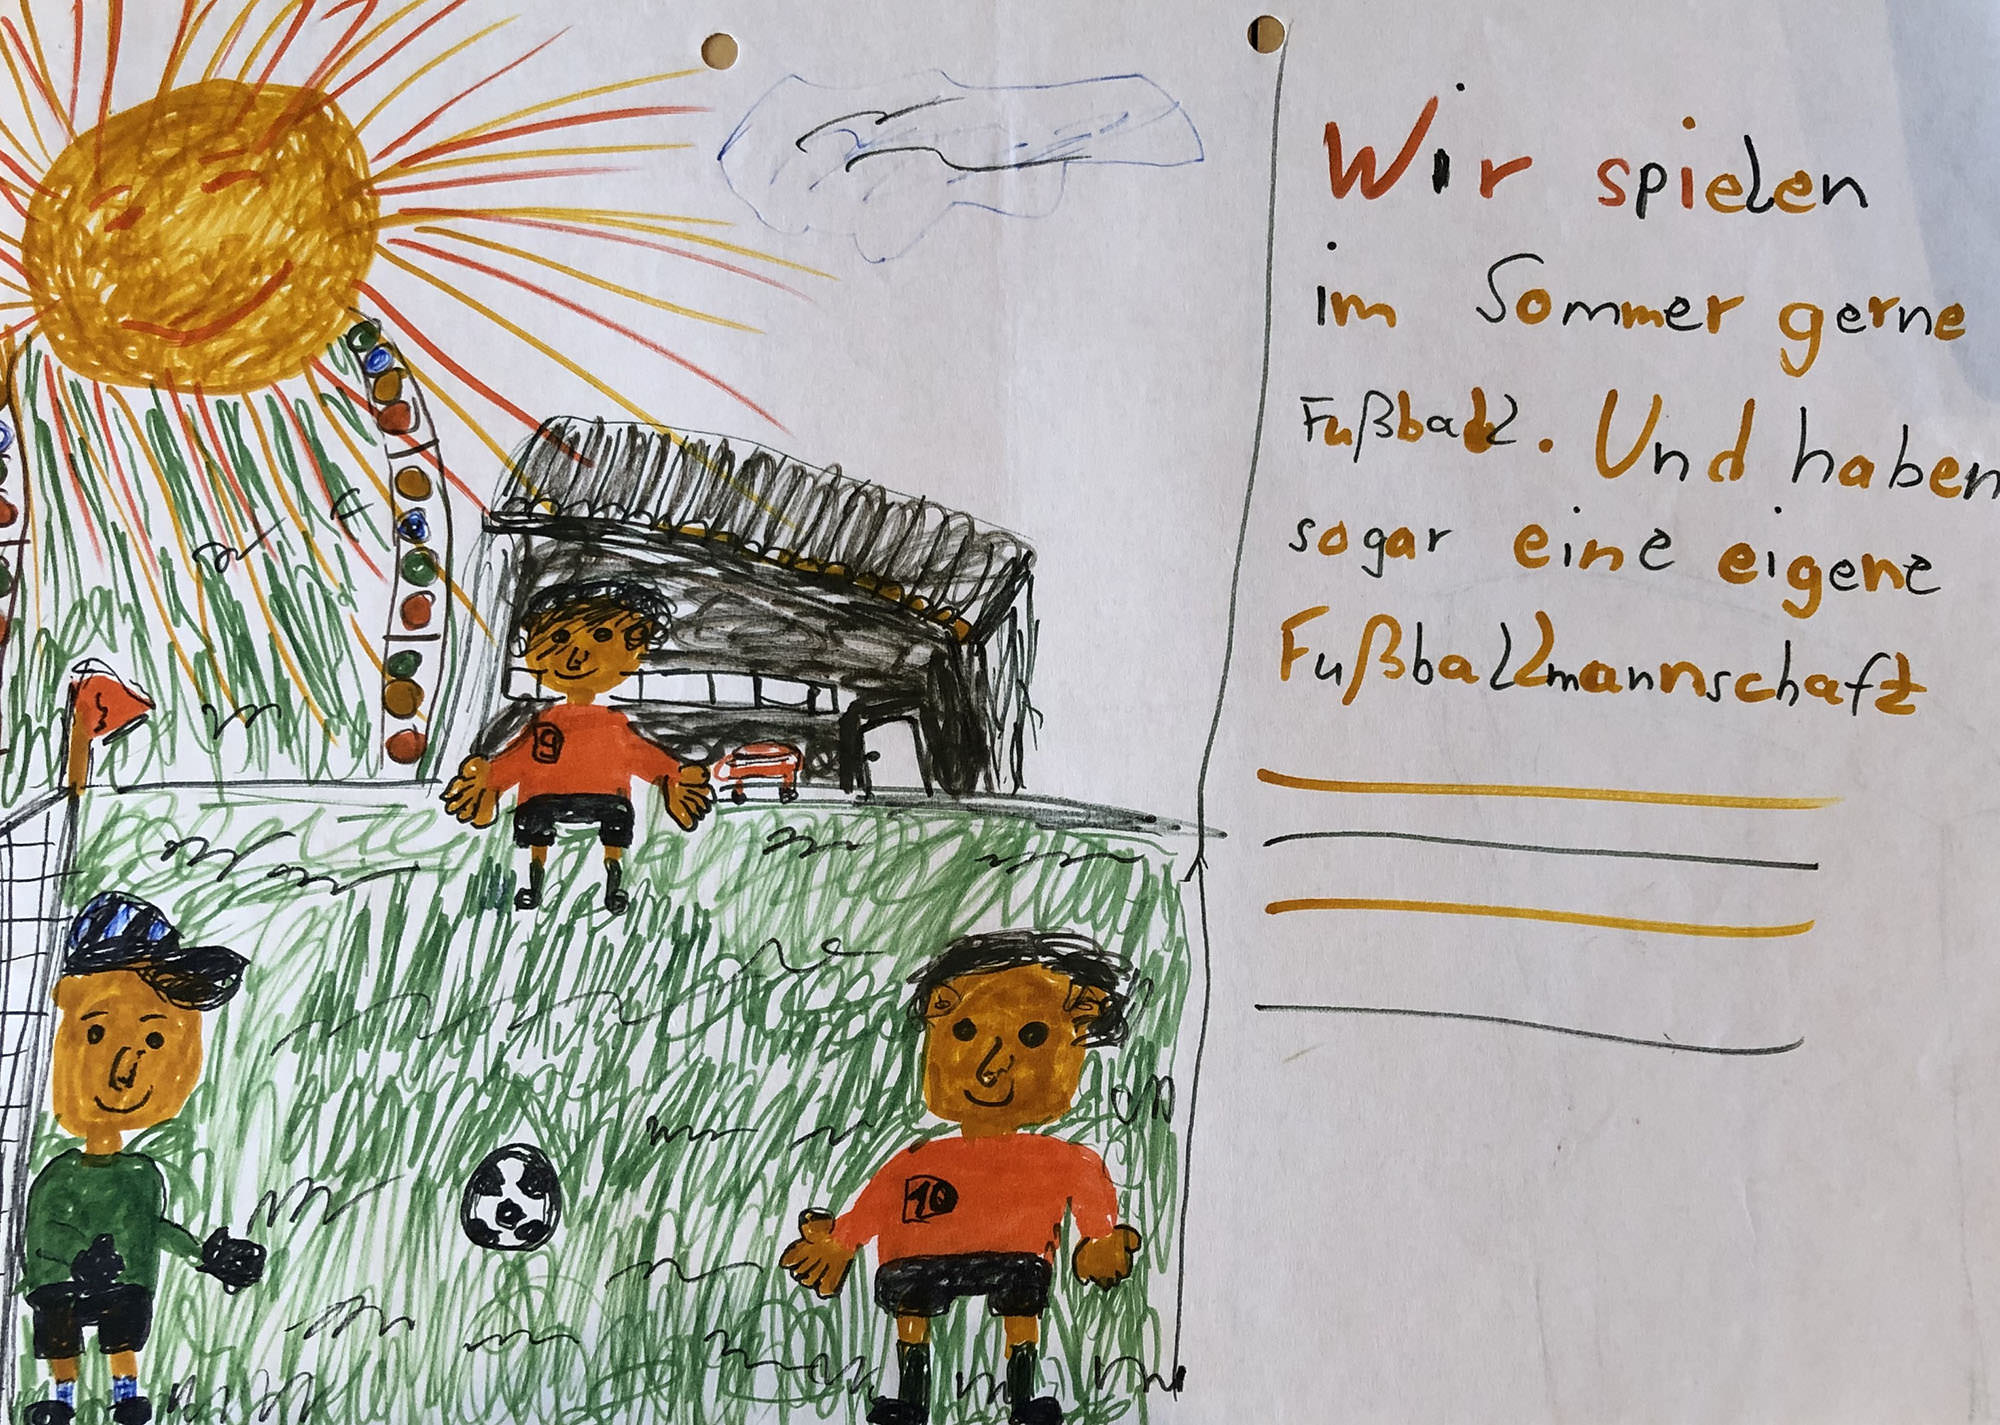 Wir spielen
im Sommer gerne
Fußball. Und haben
sogar eine eigene
Fußballmannschaft
9
10